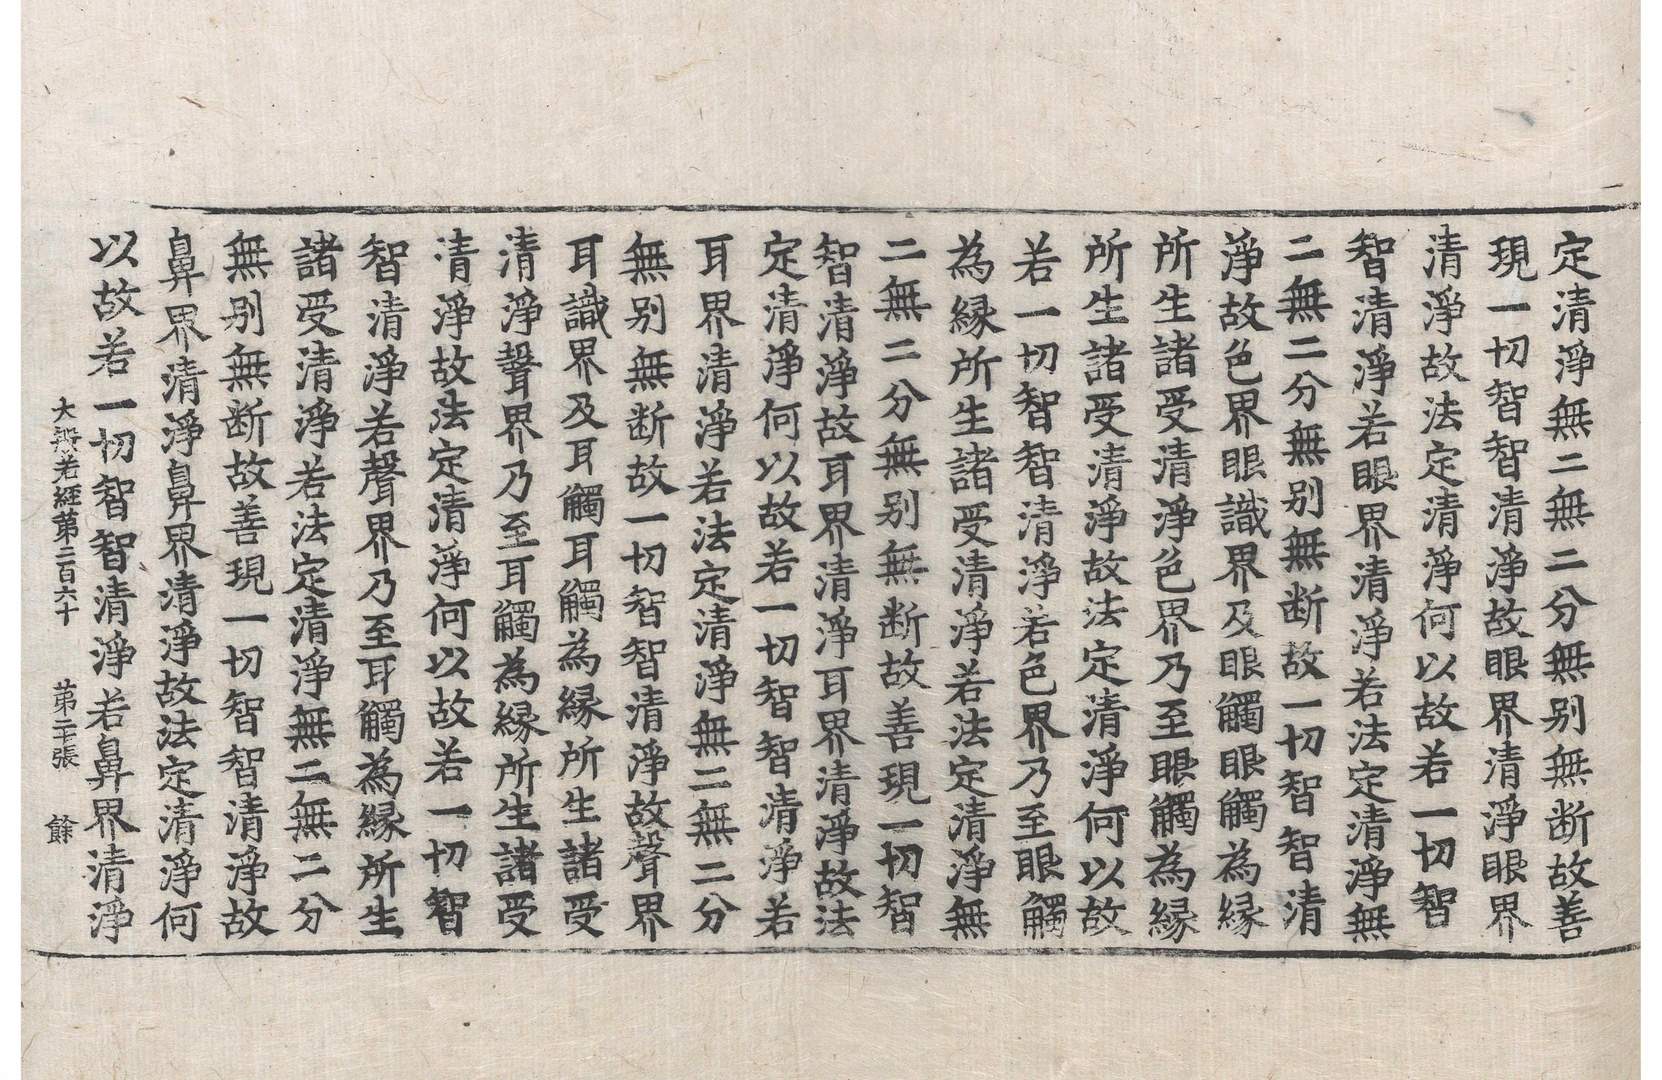 定清淨無二無二分無別無断故善
現一切智智清淨故眼界清淨眼界
清淨故法定清淨何以故若一切智
智清淨若眼界清淨若法定清淨無
二無二分無別無断故一切智智清
淨故色界眼識界及眼觸眼觸為縁
所生諸受清淨色界乃至眼觸為縁
所生諸受清淨故法定清淨何以故
若一切智智清淨若色界乃至眼觸
為縁所生諸受清淨若法定清淨無
二無二分無別無断故善現一切智
智清淨故耳界清淨耳界清淨故法
定清淨何以故若一切智智清淨若
耳界清淨若法定清淨無二無二分
無別無断故一切智智清淨故聲界
耳識界及耳觸耳觸為縁所生諸受
清淨聲界乃至耳觸為縁所生諸受
清淨故法定清淨何以故若一切智
智清淨若聲界乃至耳觸為縁所生
諸受清淨若法定清淨無二無二分
無別無断故善現一切智智清淨故
鼻界清淨鼻界清淨故法定清淨何
以故若一切智智清淨若鼻界清淨
大般若經第二百六十 第二十張 餘